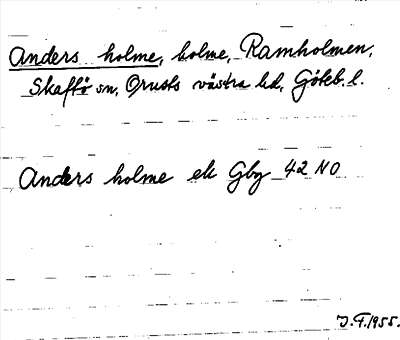 Anders holme, holme, Ramholmen,
Skaftö sn, Orusts västra hd, Göteb. l.
Anders holme ek Gbg 42 NO
J.F. 1955.